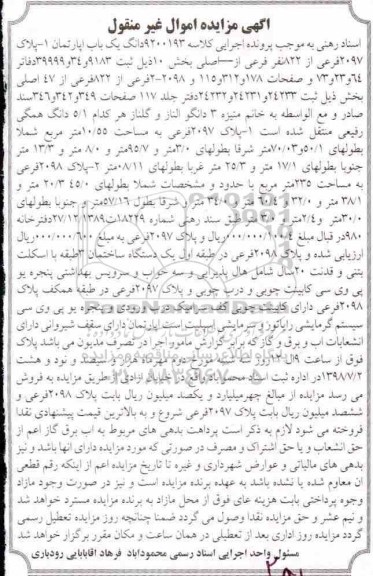 آگهی مزایده اموال غیر منقول
اسناد رهنی به موجب پرونده اجرایی کلاسه ۹۲۰۰۱۹۳ دانگ یک باب اپارتمان ۱-پلاک
۲۰۹۷فرعی از ۸۲۲نفر فرعی از اصلی بخش ۱۰ذیل ثبت ۹۱۸۳و۳۴و۳۹۹۹۹دفاتر
۶۴و۲۳و۷۳ و صفحات ۱۷۸و۳۱۲و۱۱۵ و ۲۰۹۸-۲فرعی از ۸۲۲فرعی از ۴۷ اصلی
بخش ذیل ثبت ۲۴۲۳۳و۲۴۲۳۱و۲۴۲۳۲دفتر جلد ۱۱۷ صفحات ۳۴۹و۳۴۲و۳۴۶سند
صادر و مع الواسطه به خانم منیژه ۳ دانگو الناز و گلناز هر کدام ۵/۱ دانگ همگی
رفیعی منتقل شده است ۱-پلاک ۲۰۹۷فرعی به مساحت ۱۰/۵۵متر مربع شملا
بطولهای ۵۰/۱و۷۰/۰۳متر شرقا بطولهای ۳/۰متر و ۹۵/۷متر و ۸۰ متر و ۱۳/۳ متر
جنوبا بطولهای ۱۷/۱ متر و ۲۵/۳ متر غربا بطولهای ۰۸/۱۱متر ۲-پلاک ۲۰۹۸فرعی
به مساحت ۲۳۵متر مربع با حدود و مشخصات شملا بطولهای ۴۵/۰ ۲۰/۳ متر و
۳۸/۱ متر و
۳۰/۰متر و
۹۸۰در قبال مبلغ
ارزیابی شده و پلاک ۲۰۹۸فرعی در طبقه اول یک دستگاه ساختمان ۳طبقه با اسکلت
بتنی و قدمت ۲۰سال شامل هال پذیرایی و سه خواب و سرویس بهداشتی پنجره یو
پی وی سی کابینت چوبی و درب چوبی و پلاک ۲۰۹۷فرعی در طبقه همکف پلاک
۲۰۹۸فرعی دارای کابینت چوبی کف سرامیک درب ورودی و پنجره یو پی وی سی
سیستم گرمایشی رادیاتور و سرمایشی اسپلیت است اپارتمان دارای سقف شیروانی دارای
انشعابات اب و برق و گاز که برابر گزارش مامور اجرا در تصرف مدیون می باشد پلاک
فوق از ساعت ۹الی ۱۲روز سه شنبه مورخ دوم مهرماه هزار و سیصد و نود و هشت
۱۳۹۸/۷/۲در اداره ثبت اسناد محموداباد واقع در خیابان ازادی از طریق مزایده به فروش
می رسد مزایده از مبالغ چهرمیلیارد و یکصد میلیون ریال بابت پلاک ۲۰۹۸فرعی و
ششصد میلیون ریال بابت پلاک ۲۰۹۷فرعی شروع و به بالاترین قیمت پیشنهادی نقدا
فروخته می شود لازم به ذکر است پرداهت بدهی های مربوط به اب برق گاز اعم از
حق انشعاب و یا حق اشتراک و مصرف در صورتی که مورد مزایده دارای انها باشد و نیز
بدهی های مالیاتی و عوارض شهرداری و غیره تا تاریخ مزایده اعم از اینکه رقم قطعی
ان معلوم شده یا نشده باشد به عهده برنده مزایده است و نیز در صورت وجود مازاد
وجوه پرداختی بابت هزینه های فوق از محل مازاد به برنده مزایده مسترد خواهد شد
و نیم عشر و حق مزایده نقدا وصول می گردد ضمنا چنانچه روز مزایده تعطیل رسمی
گردد مزایده روز اداری بعد از تعطیلی در همان ساعت و مکان مقرر برگزار خواهد شد
مسئول واحد اجرایی اسناد رسمی محموداباد فرهاد اقابابایی رودباری